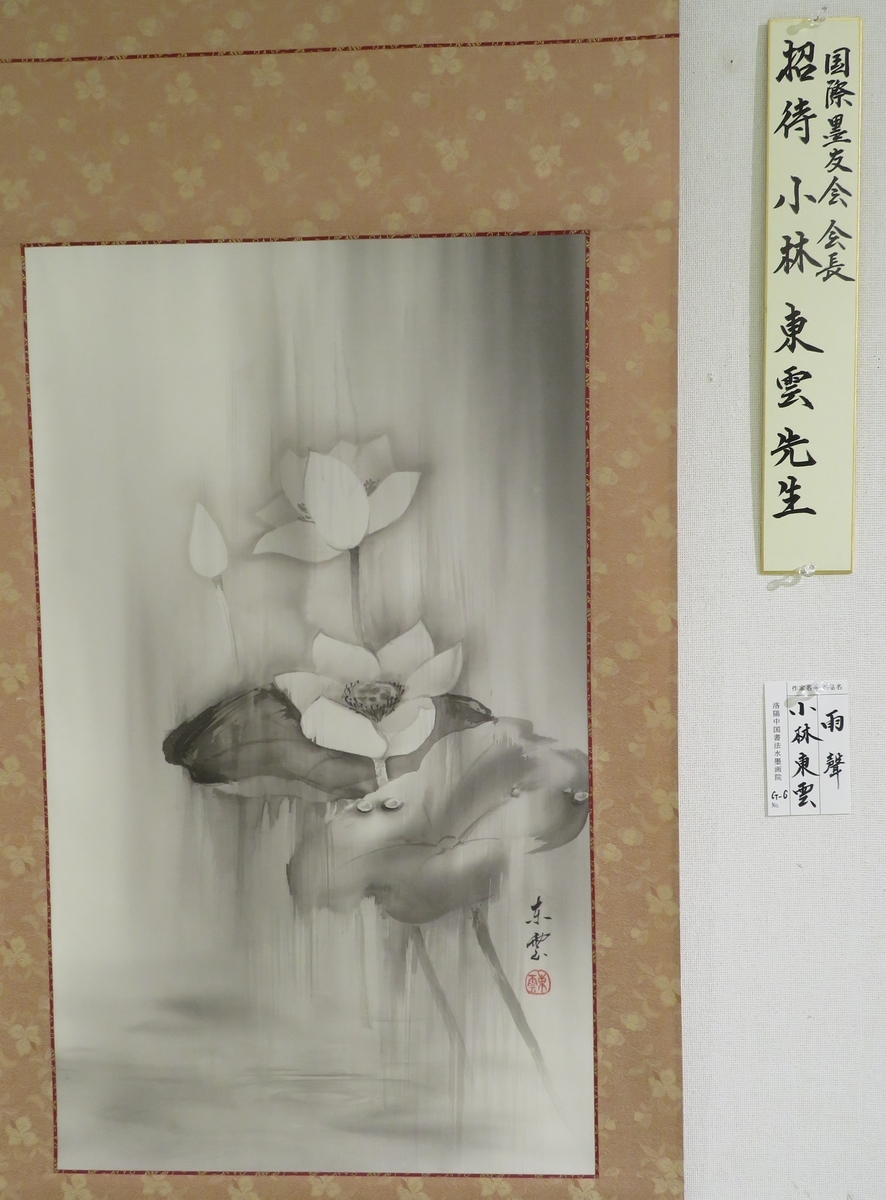 国際墨友会 会長
招待 小林 東雲先生
作家名 作品名
雨聲
小林東雲
洛陽中国書法水墨画院
No. G-6
东雲
東雲